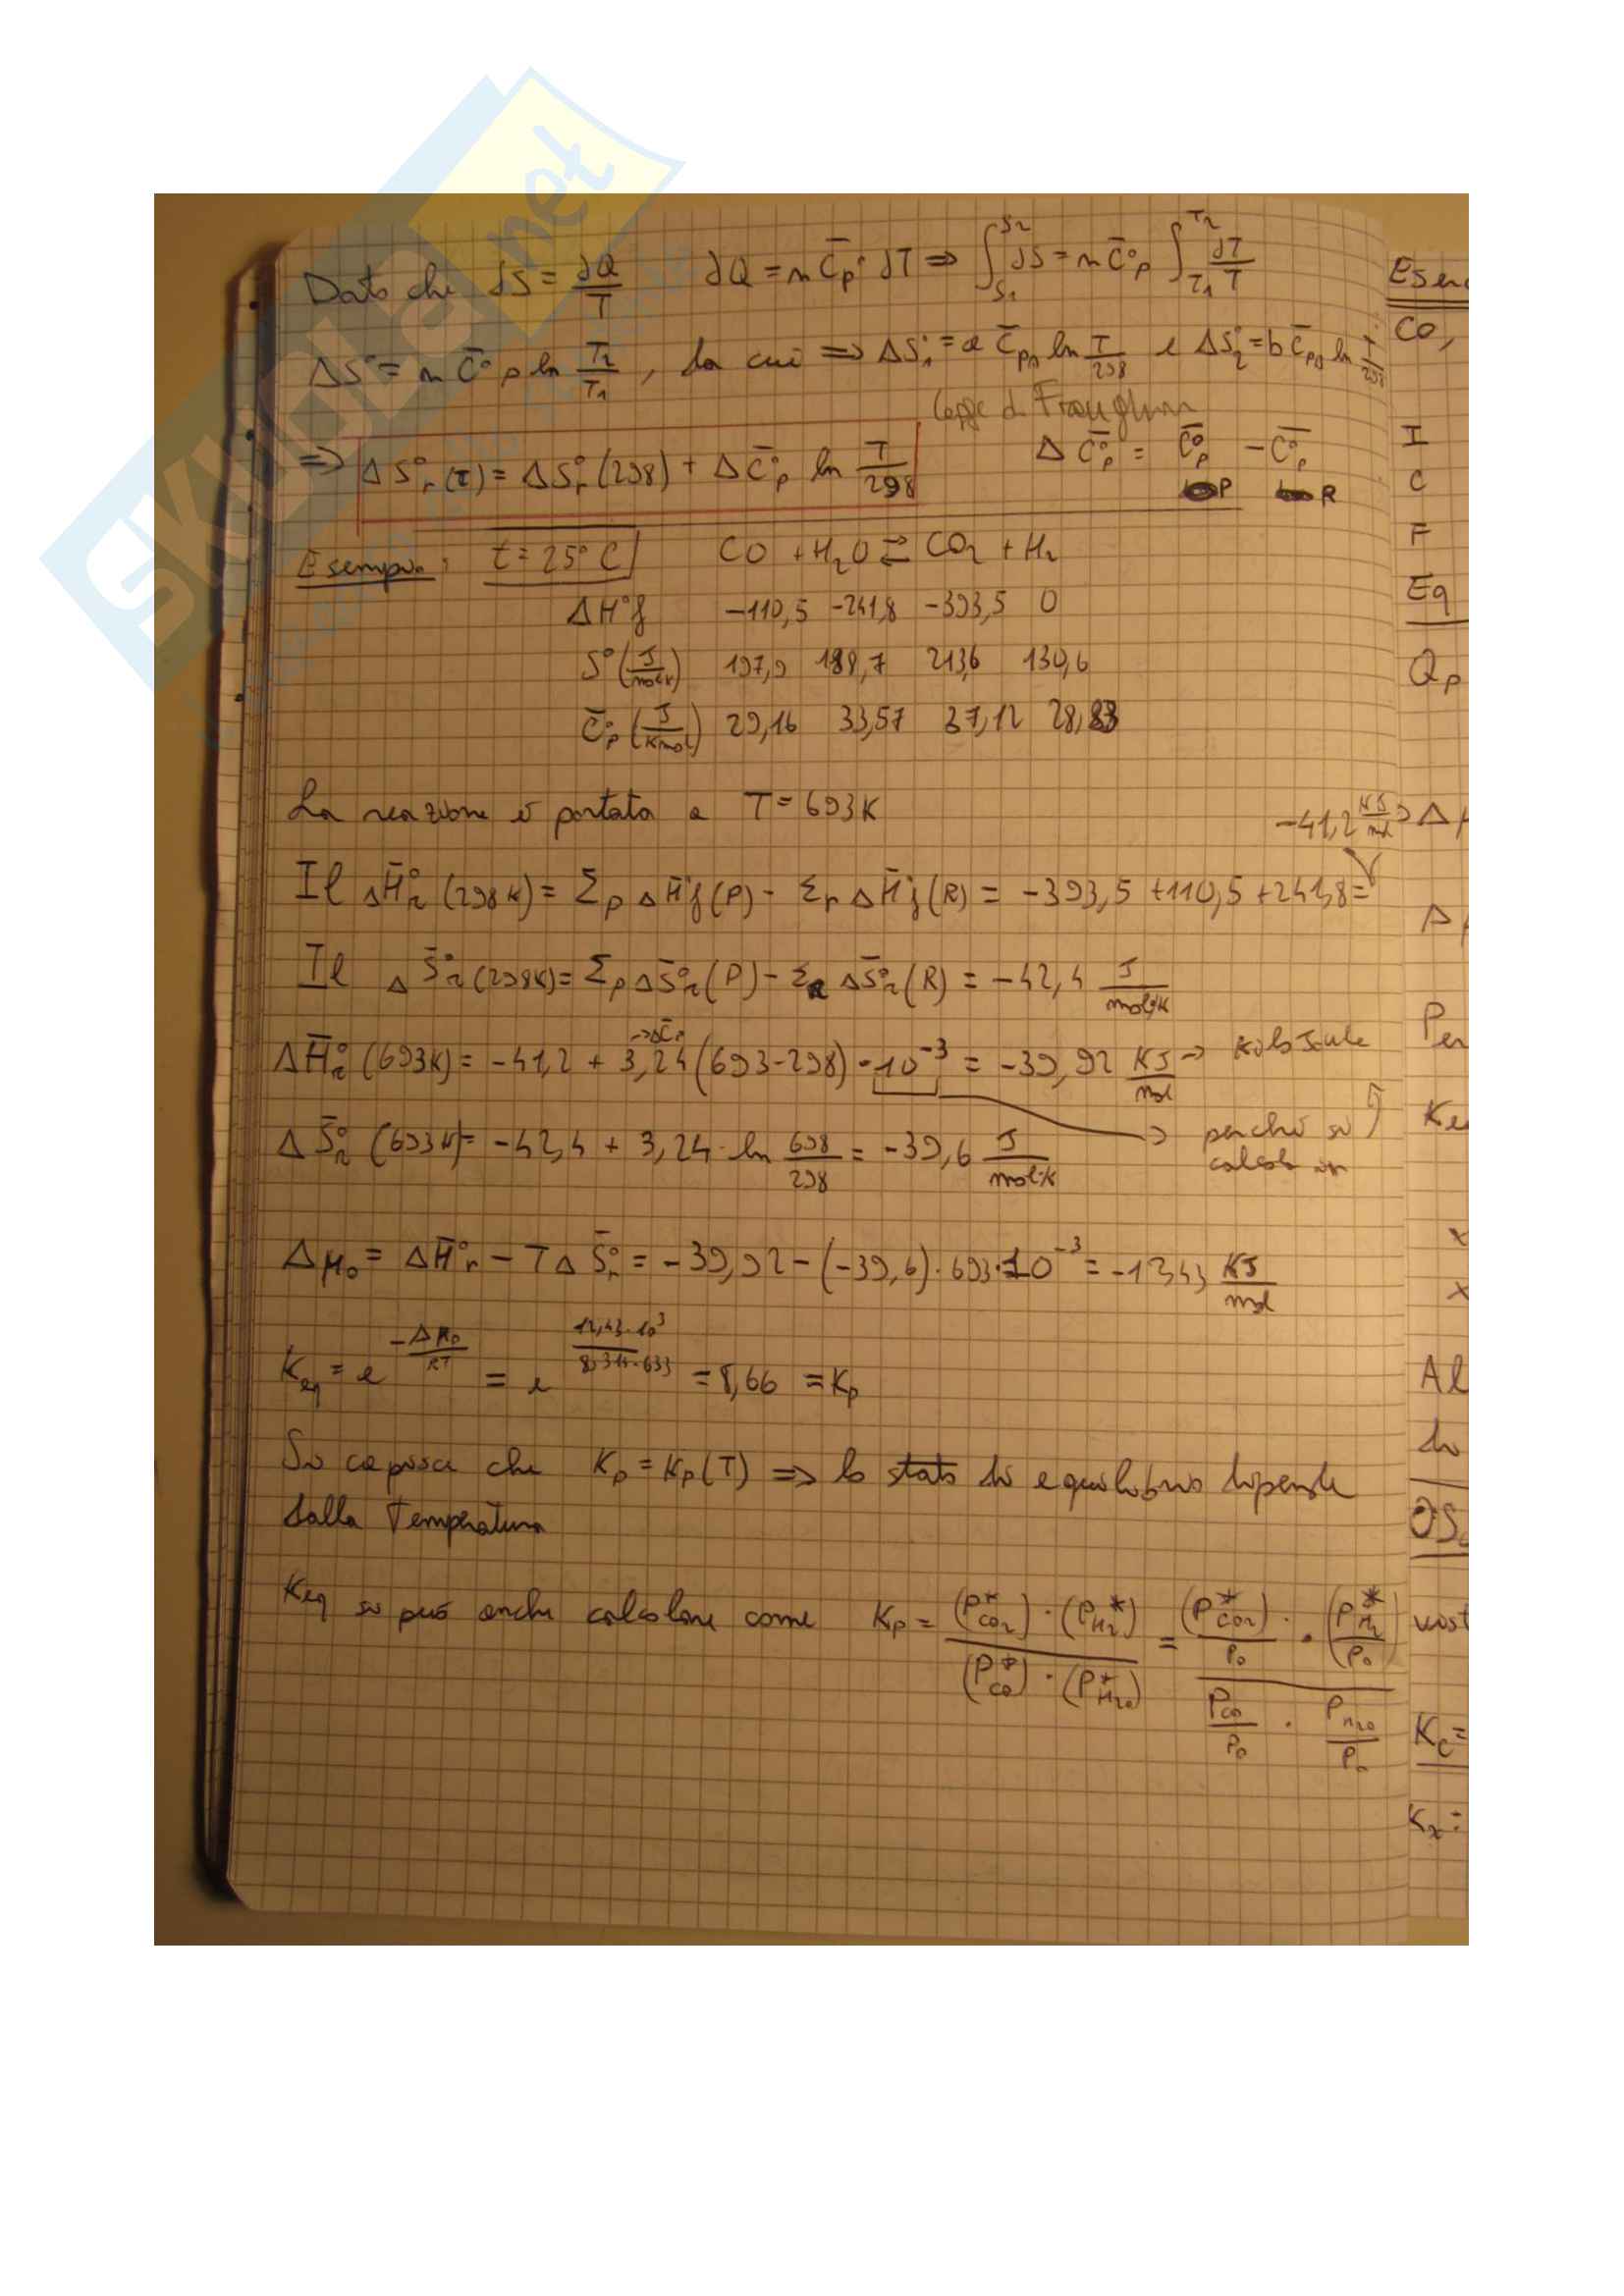 Dato che dS = ∂Q/T ∂Q = n C̄p° dT ⇒ ∫_{S1}^{S2} dS = n C̄°p ∫_{T1}^{T2} dT/T
ΔS° = n C̄°p ln T2/T1 , da cui ⇒ ΔS°1 = a C̄pA ln T/298 e ΔS°2 = b C̄pB ln T/298
Legge di
⇒ ΔS°r(T) = ΔS°r(298) + ΔC̄°p ln T/298 ΔC̄°p = C̄°p P - C̄°p R
Esempio: t = 25°C CO + H2O ⇄ CO2 + H2
ΔH°f -110,5 -241,8 -393,5 0
S° (J/molK) 197,9 188,7 213,6 130,6
C̄°p (J/Kmol) 29,16 33,57 37,12 28,83
La reazione è portata a T = 693K
-41,2 KJ/mol
Il ΔH̄°r (298K) = Σp ΔH̄°f(P) - Σr ΔH̄°f(R) = -393,5 +110,5 +241,8 =
Il ΔS̄°r (298K) = Σp ΔS̄°r(P) - ΣR ΔS̄°r(R) = -42,4 J/mol·K
→ΔC̄p
ΔH̄°r (693K) = -41,2 + 3,24 (693-298) · 10^-3 = -39,92 KJ/mol → kiloJoule
ΔS̄°r (693K) = -42,4 + 3,24 · ln 698/298 = -39,6 J/mol·K → perché si
calcola in
Δμ0 = ΔH̄°r - TΔS̄°r = -39,92 - (-39,6) · 693 · 10^-3 = -12,43 KJ/mol
Keq = e^(-Δμ0/RT) = e^(12,43·10^3/8,314·693) = 8,66 = Kp
Si capisce che Kp = Kp(T) ⇒ lo stato di equilibrio dipende
dalla Temperatura
Keq si può anche calcolare come Kp = (P*CO2) · (P*H2) / (P*CO) · (P*H2O) = (P*CO2/P0) · (P*H2/P0) / PCO/P0 · PH2O/P0
CO,
I
C
F
Eq
Qp
Kc =
Kx =
SKUOLA.net